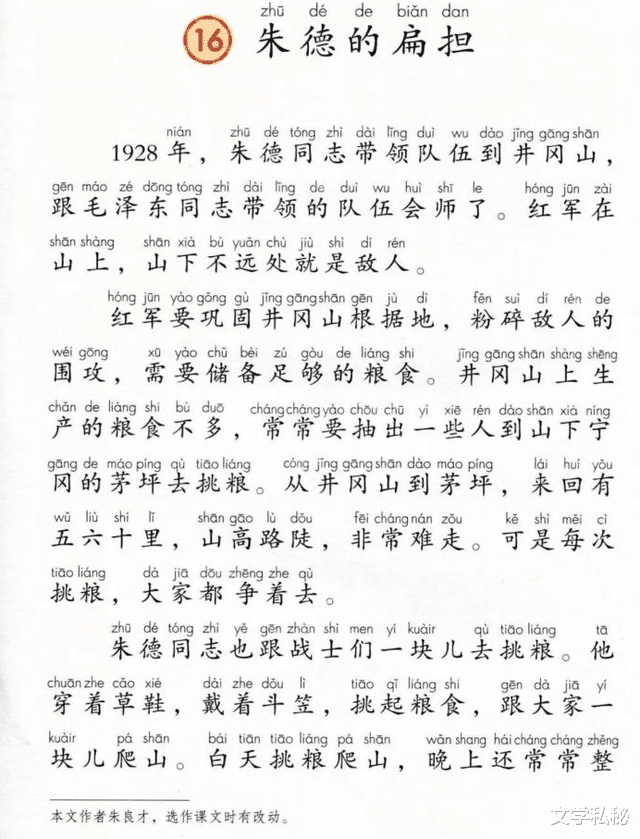 zhū dé de biǎn dan
16 朱德的扁担
nián zhū dé tóng zhì dài lǐng duì wu dào jǐng gāng shān
1928 年，朱德同志带领队伍到井冈山，
gēn máo zé dōng tóng zhì dài lǐng de duì wu huì shī le hóng jūn zài
跟毛泽东同志带领的队伍会师了。红军在
shān shàng shān xià bù yuǎn chù jiù shì dí rén
山上，山下不远处就是敌人。
hóng jūn yào gǒng gù jǐng gāng shān gēn jù dì fěn suì dí rén de
红军要巩固井冈山根据地，粉碎敌人的
wéi gōng xū yào chǔ bèi zú gòu de liáng shi jǐng gāng shān shàng shēng
围攻，需要储备足够的粮食。井冈山上生
chǎn de liáng shi bù duō cháng cháng yào chōu chū yì xiē rén dào shān xià níng
产的粮食不多，常常要抽出一些人到山下宁
gāng de máo píng qù tiāo liáng cóng jǐng gāng shān dào máo píng lái huí yǒu
冈的茅坪去挑粮。从井冈山到茅坪，来回有
wǔ liù shí lǐ shān gāo lù dǒu fēi cháng nán zǒu kě shì měi cì
五六十里，山高路陡，非常难走。可是每次
tiāo liáng dà jiā dōu zhēng zhe qù
挑粮，大家都争着去。
zhū dé tóng zhì yě gēn zhàn shì men yí kuàir qù tiāo liáng tā
朱德同志也跟战士们一块儿去挑粮。他
chuān zhe cǎo xié dài zhe dǒu lì tiāo qǐ liáng shi gēn dà jiā yí
穿着草鞋，戴着斗笠，挑起粮食，跟大家一
kuàir pá shān bái tiān tiāo liáng pá shān wǎn shang hái cháng cháng zhěng
块儿爬山。白天挑粮爬山，晚上还常常整
本文作者朱良才，选作课文时有改动。
文学私秘